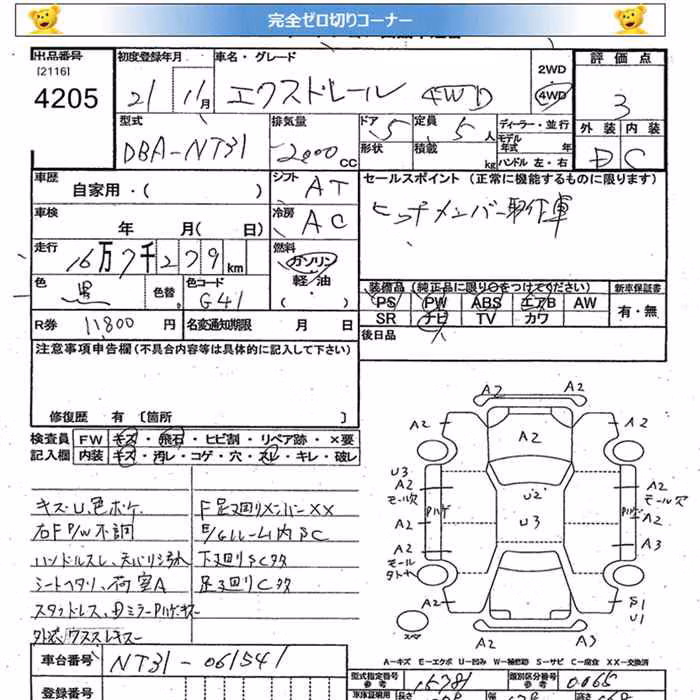 完全ゼロ切りコーナー
出品番号 初度登録年月 車名・グレード 2WD 評価点
[2116]
4205 21 11月 エクストレール 4WD 4WD 3
型式 排気量 ドア 5 定員 5人 ディーラー・並行 外装 内装
DBA-NT31 2000CC 形状 積載 kg モデル年式 年 D C
ハンドル 左・右
車歴 自家用・( ) シフト AT セールスポイント (正常に機能するものに限ります)
車検 年 月( 日) 冷房 AC ヒッチメンバー
走行 16万7千279km 燃料 ガソリン
軽・油
( )
色 黒 色替 色コード G41
装備品(純正品に限り○をつけて下さい) 新車保証書
PS PW ABS エアB AW 有・無
SR ナビ TV カワ
R券 11800円 名変通知期限 月 日 後日品
注意事項申告欄(不具合内容等は具体的に記入して下さい)
修復歴 有 [箇所 ]
検査員記入欄 FW キズ・飛石・ヒビ割・リペア跡・×要
内装 キズ・汚レ・コゲ・穴・スレ・キレ・破レ
キズ・U、色ボケ F足廻りメンバーXX
右F P/W不調 E/Gルーム内SC
ハンドルスレ、天バリ汚れ 下廻りSCタタ
シートヘタリ、荷室A 足廻りCタタ
スタッドレス、
A2 A2
A2 A2 A2
U3 A2 U2 A2
モール欠 モール欠
ハゲ U3 ハゲ
A2 A2
A2 A3
モール
A2 S1
U1
A2 A3
A-キズ E-エクボ U-凹み W-補修跡 S-サビ C-腐食 XX-交換済
車台番号 NT31-061541
型式指定番号 参考 15781 類別区分番号 参考 0065
登録番号 車体証明用 長さ